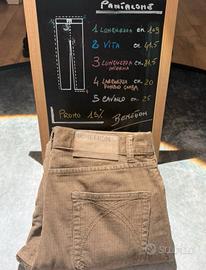 PANTALONE
1 LUNGHEZZA cm 109
2 VITA cm 41.5
3 LUNGHEZZA cm 81.5
INTERNA
4 LARGHEZZA cm. 20
FONDO GAMBA
5 CAVALLO cm 25
PROMO 15%
subito